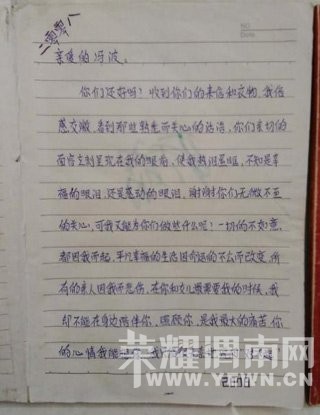 二零零八
亲爱的冯波。
你们还好吗？收到你们的来信和衣物，我倍
感交激，看到那些熟悉而关心的话语，你们亲切的
面容立刻呈现在我的眼前，使我热泪盈眶，不知是幸
福的眼泪，还是感动的眼泪，谢谢你们无微不至
的关心，可我又能为你们做些什么呢？一切的不如意，
都因我而起，平凡幸福的生活因命运的不公而改变，所
有的亲人因我而悲伤，在你和女儿最需要我的时候，我
却不能在身边陪伴你，照顾你，是我最大的痛苦，你
的心情我能
荣耀渭南网
WWW.YEWN.CN